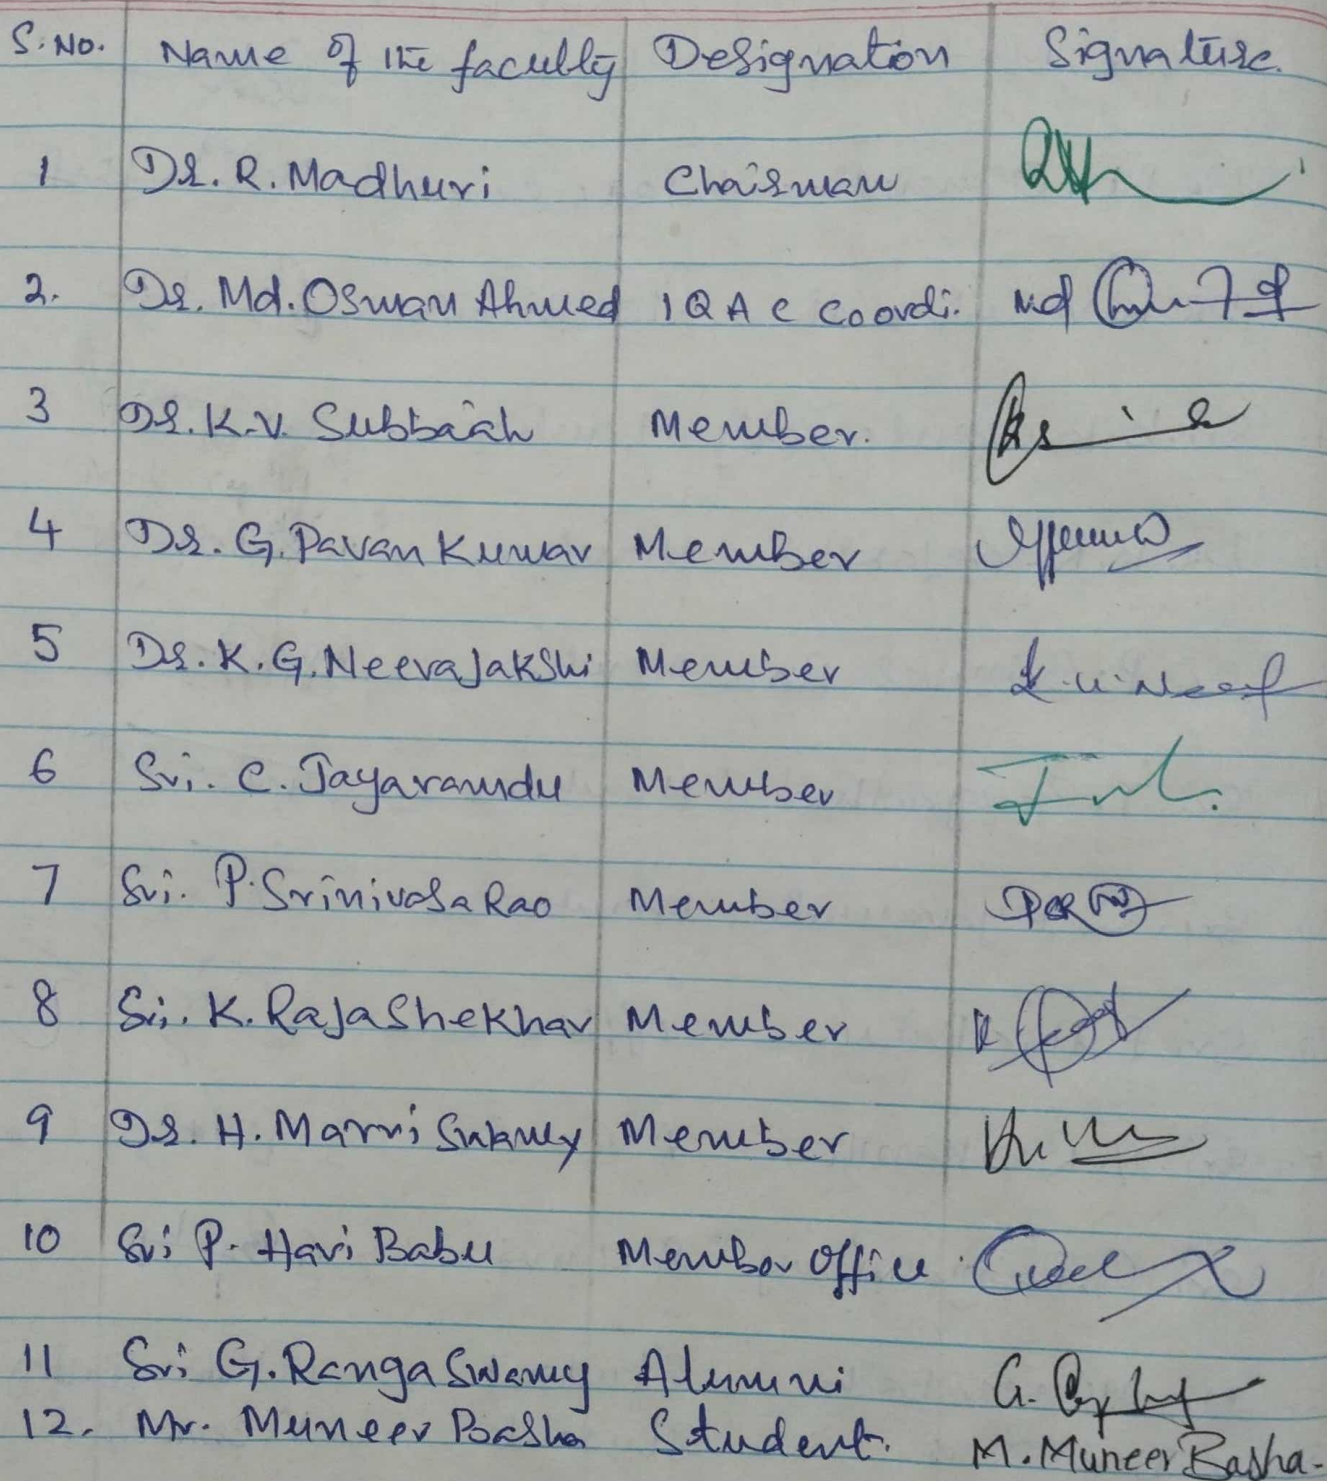 S.No. Name of the faculty Designation Signature.
1 Dr. R. Madhuri Chairman
2. Dr. Md. Osman Ahmed IQAC Coordi. Md
3 Dr. K.V. Subbaiah Member.
4 Dr. G. Pavan Kumar Member
5 Dr. K.G. Neerajakshi Member
6 Sri. C. Jayaramdu Member
7 Sri. P. Srinivasa Rao Member
8 Sri. K. Rajashekhar Member
9 Dr. H. Marri Swamy Member
10 Sri P. Hari Babu Member Office
11 Sri G. Ranga Swamy Alumni G.
12. Mr. Muneer Basha Student. M. Muneer Basha.